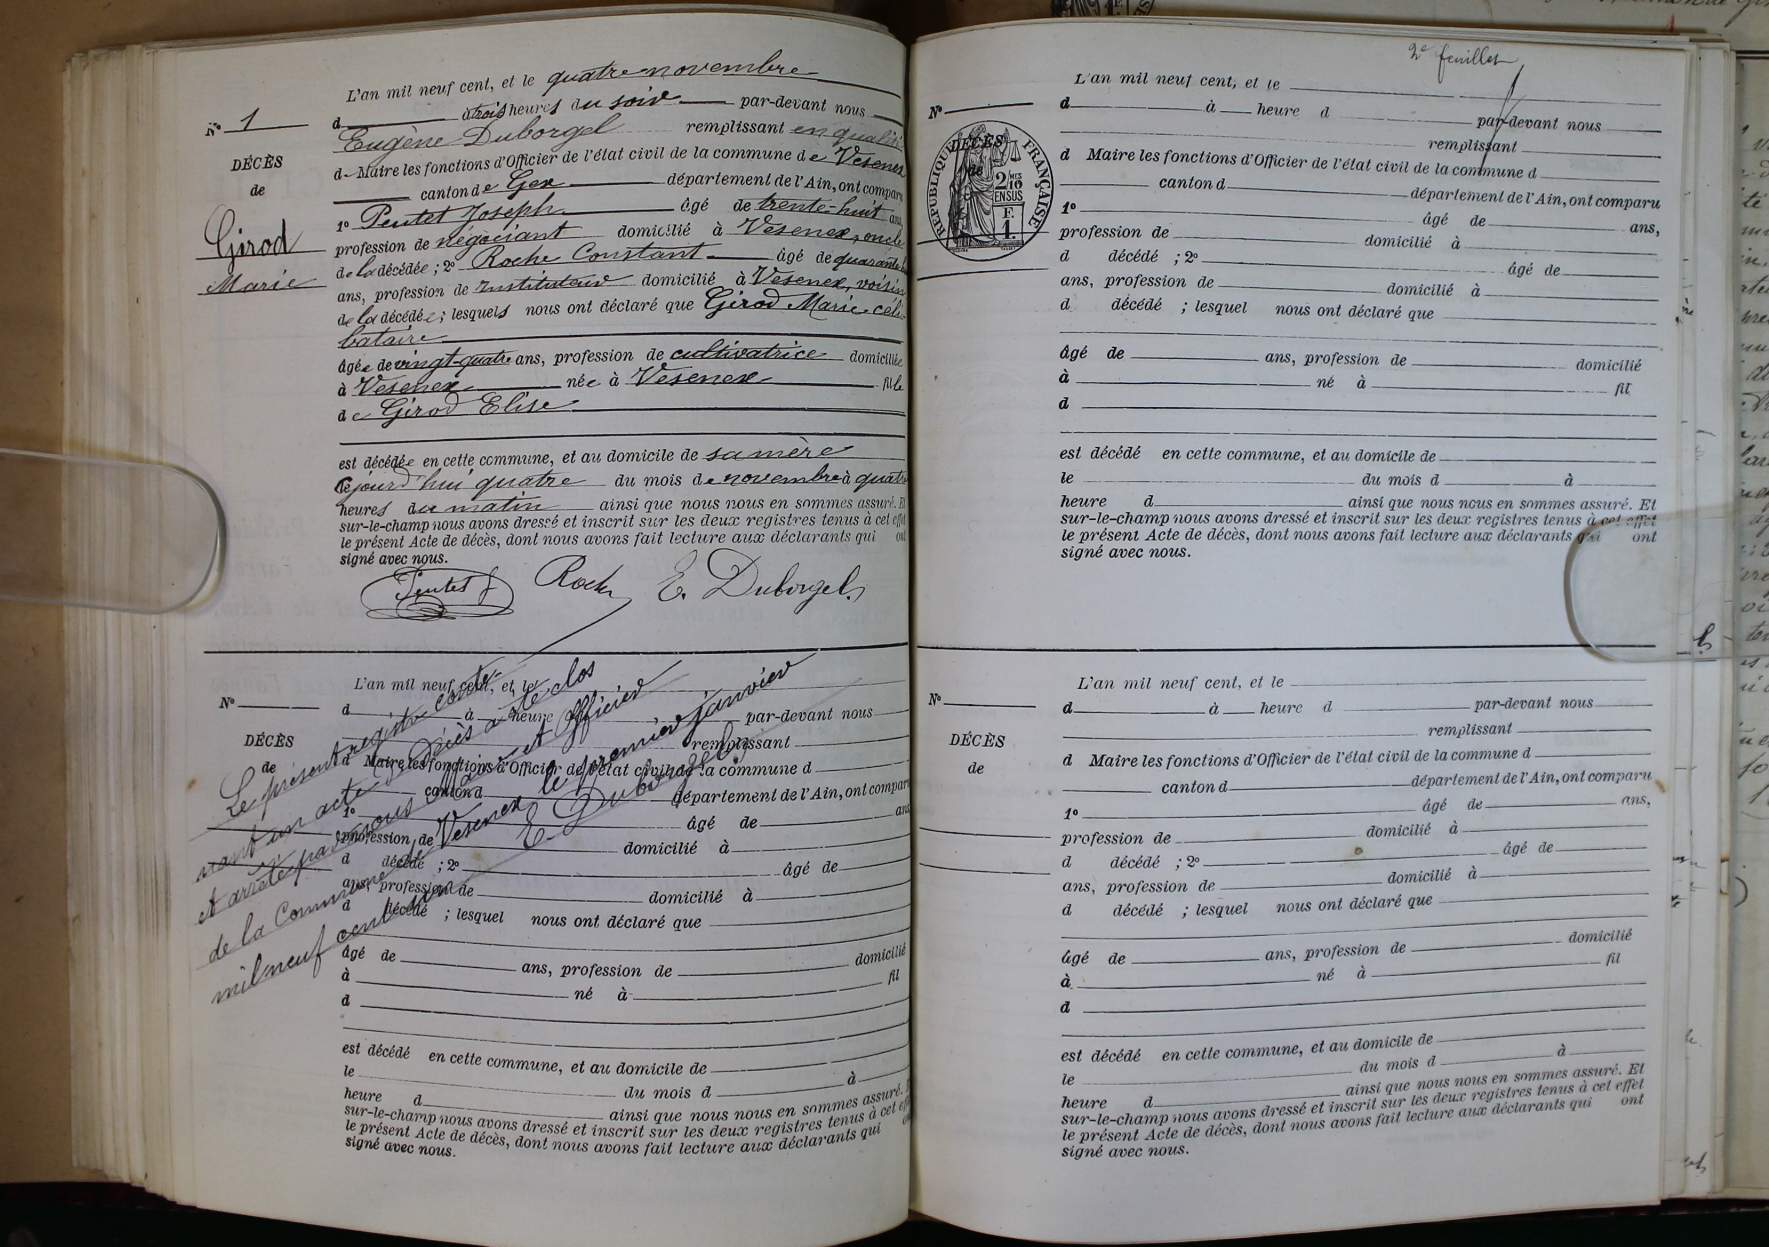 L'an mil neuf cent, et le quatre novembre
Nº 1
d à trois heures du soir par-devant nous
Eugène Duborgel remplissant en qualité
DÉCÈS
de Maire les fonctions d'Officier de l'état civil de la commune de Vesenex
de
canton de Gex département de l'Ain, ont comparu
1º Pentet Joseph âgé de trente-huit ans
Girod
profession de négociant domicilié à Vesenex, oncle
Marie
de la décédée ; 2º Roche Constant âgé de quarante
ans, profession de Instituteur domicilié à Vesenex, voisin
de la décédée ; lesquels nous ont déclaré que Girod Marie céli-
bataire
âgée de vingt-quatre ans, profession de cultivatrice domiciliée
à Vesenex née à Vesenex fille
de Girod Elise
est décédée en cette commune, et au domicile de sa mère
cejourd'hui quatre du mois de novembre à quatre
heures du matin ainsi que nous nous en sommes assuré. Et
sur-le-champ nous avons dressé et inscrit sur les deux registres tenus à cet effet
le présent Acte de décès, dont nous avons fait lecture aux déclarants qui ont
signé avec nous.
Pentet J Roche E. Duborgel
L'an mil neuf cent, et le
Nº
d à heure d par-devant nous
DÉCÈS
remplissant
de
d Maire les fonctions d'Officier de l'état civil de la commune d
canton d département de l'Ain, ont comparu
1º âgé de ans
profession de domicilié à
d décédé ; 2º âgé de
ans, profession de domicilié à
d décédé ; lesquel nous ont déclaré que
âgé de ans, profession de domicilié
à né à fil
d
est décédé en cette commune, et au domicile de
le du mois d à
heure d ainsi que nous nous en sommes assuré.
sur-le-champ nous avons dressé et inscrit sur les deux registres tenus à cet effet
le présent Acte de décès, dont nous avons fait lecture aux déclarants qui
signé avec nous.
Le présent registre conte-
nant un acte de décès a été clos
et arrêté par nous Maire et Officier
de la Commune de Vesenex le premier janvier
mil neuf cent un E. Duborgel
2e feuillet
L'an mil neuf cent, et le
Nº
d à heure d par-devant nous
remplissant
DÉCÈS
de
d Maire les fonctions d'Officier de l'état civil de la commune d
canton d département de l'Ain, ont comparu
RÉPUBLIQUE FRANÇAISE
2/10
EN SUS
F.
1.
1º âgé de ans,
profession de domicilié à
d décédé ; 2º âgé de
ans, profession de domicilié à
d décédé ; lesquel nous ont déclaré que
âgé de ans, profession de domicilié
à né à fil
d
est décédé en cette commune, et au domicile de
le du mois d à
heure d ainsi que nous nous en sommes assuré. Et
sur-le-champ nous avons dressé et inscrit sur les deux registres tenus à cet effet
le présent Acte de décès, dont nous avons fait lecture aux déclarants qui ont
signé avec nous.
L'an mil neuf cent, et le
Nº
d à heure d par-devant nous
remplissant
DÉCÈS
de
d Maire les fonctions d'Officier de l'état civil de la commune d
canton d département de l'Ain, ont comparu
1º âgé de ans,
profession de domicilié à
d décédé ; 2º âgé de
ans, profession de domicilié à
d décédé ; lesquel nous ont déclaré que
âgé de ans, profession de domicilié
à né à fil
d
est décédé en cette commune, et au domicile de
le du mois d à
heure d ainsi que nous nous en sommes assuré. Et
sur-le-champ nous avons dressé et inscrit sur les deux registres tenus à cet effet
le présent Acte de décès, dont nous avons fait lecture aux déclarants qui ont
signé avec nous.